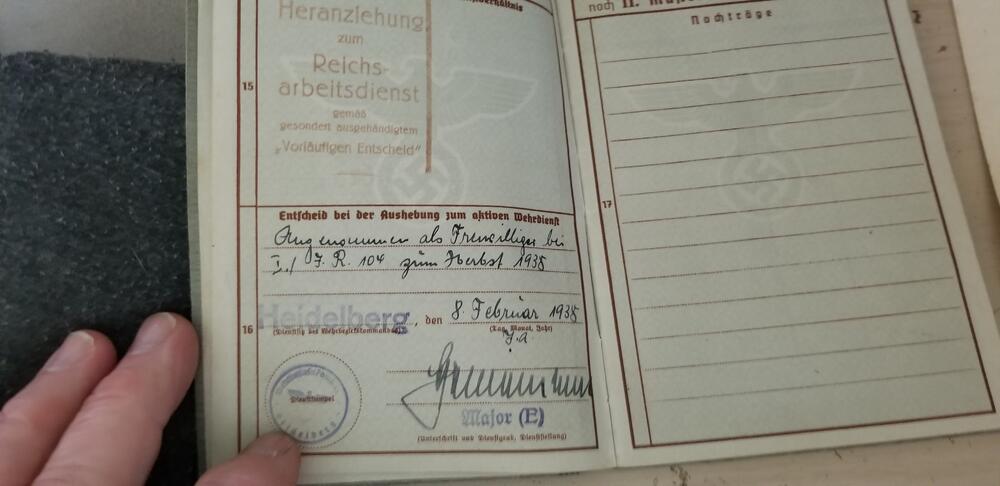 Heranziehung
zum
Reichs-
arbeitsdienst
gemäß
gesondert ausgehändigtem
„Vorläufigen Entscheid“
15
Entscheid bei der Aushebung zum aktiven Wehrdienst
Angenommen als Freiwilliger bei
I./ J. R. 104 zum Herbst 1938
16
Heidelberg, den 8. Februar 1938
(Dienstsitz des Wehrbezirkskommandos)
(Tag, Monat, Jahr)
J.A.
Dienststempel
Heidelberg
Major (E)
(Unterschrift und Dienstgrad, Dienststellung)
noch II.
Nachträge
17